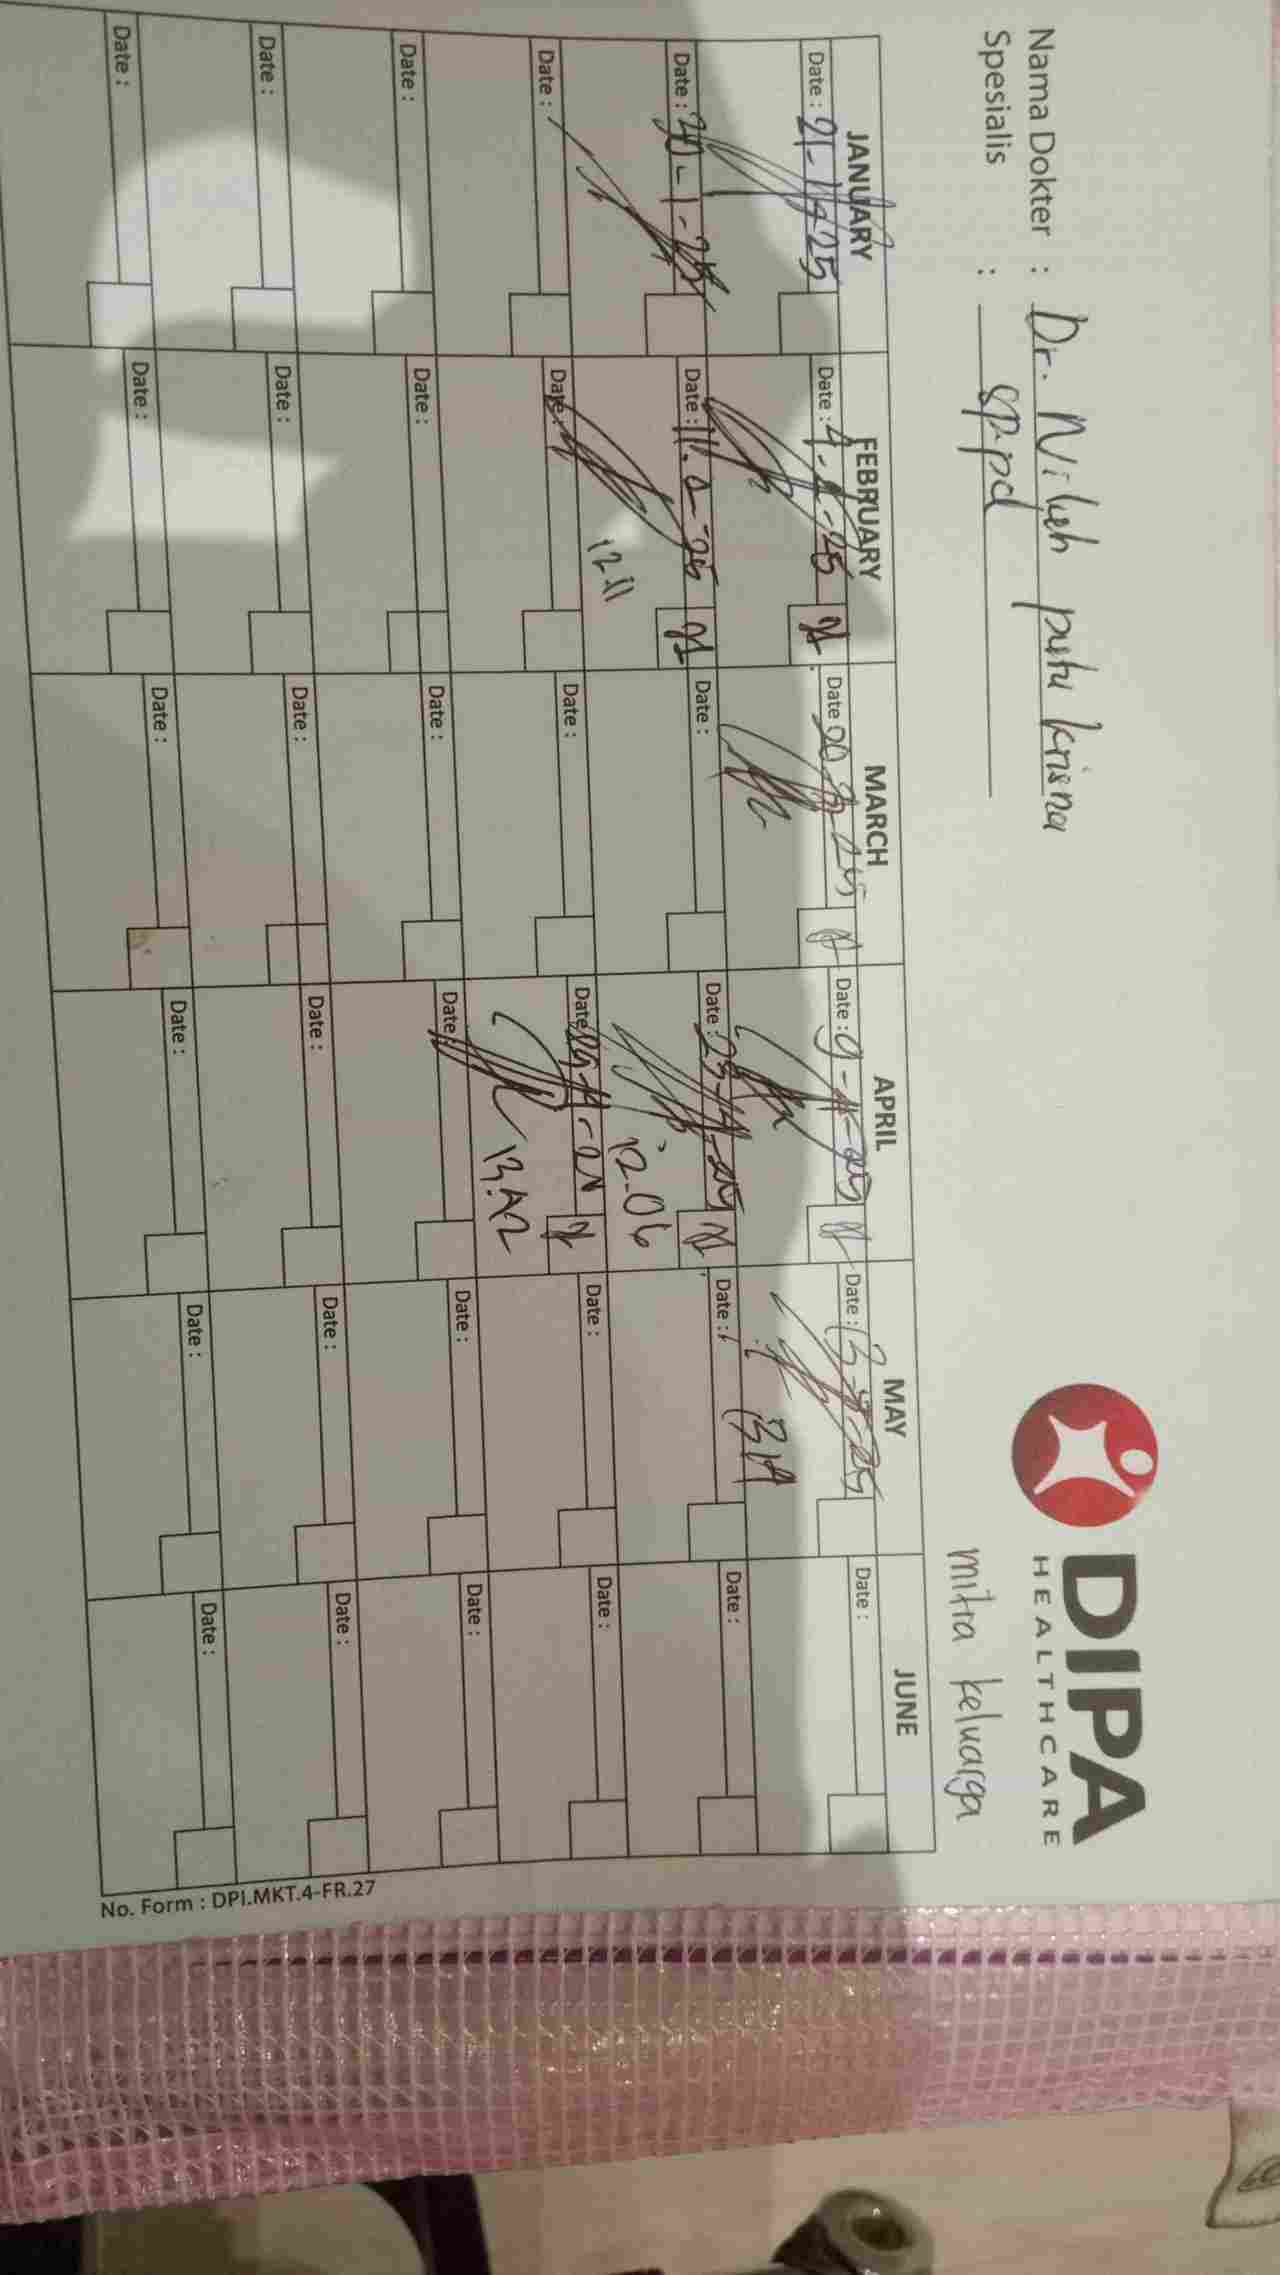 DIPA
HEALTHCARE
mitra keluarga
Nama Dokter : Dr. Niluh putu krisna
Spesialis : Sp.pd
JANUARY FEBRUARY MARCH APRIL MAY JUNE
Date : 21-1-25 Date : 4-2-25 Date Date : 9-4-25 Date : 13-5-25 Date :
1314
Date : 30-1-25 Date : 11-2-25 Date : Date : 23-4-25 Date : Date :
12.11 12.06
Date : Date : Date : Date Date : Date :
13.42
Date : Date : Date : Date : Date : Date :
Date : Date : Date : Date : Date : Date :
Date : Date : Date : Date : Date : Date :
No. Form : DPI.MKT.4-FR.27